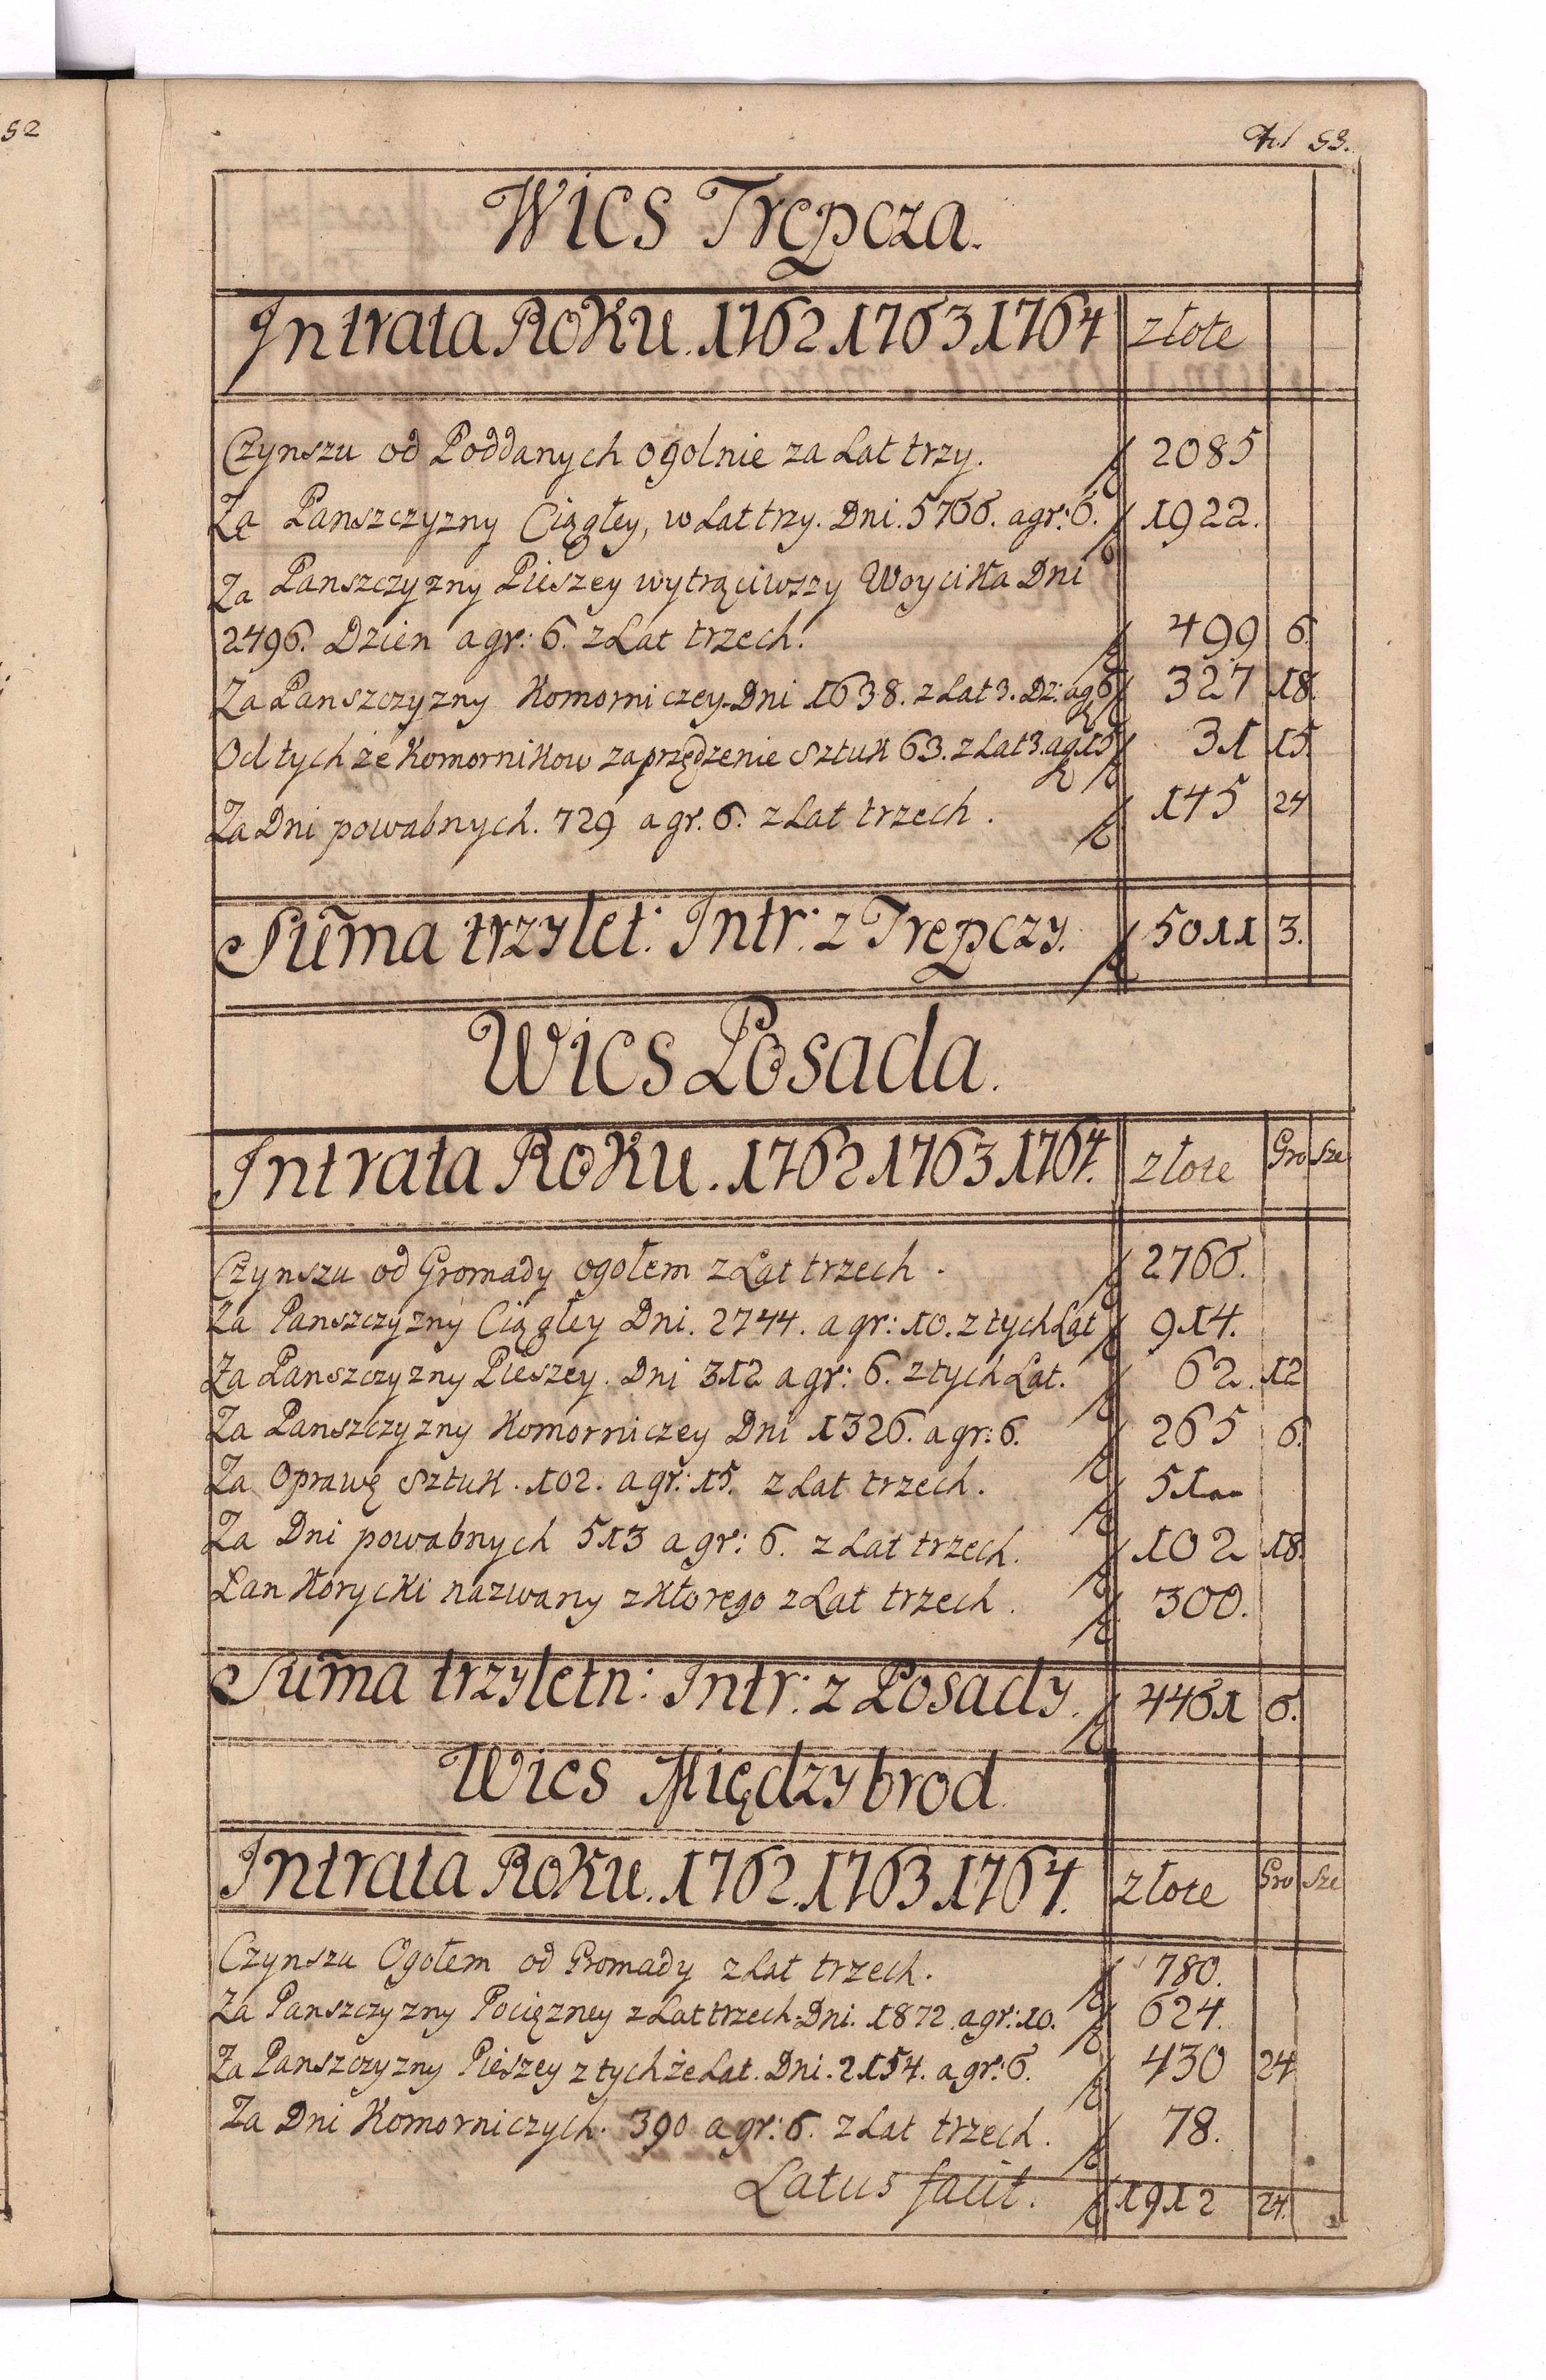 52
fol 53.
Wies Trępcza.
Intrata Roku. 1762 1763 1764 złote
Czynszu od Poddanych ogolnie za Lat trzy. 2085
Za Panszczyzny Ciągłey, w Lat trzy. Dni. 5766. a gr: 6. 1922.
Za Panszczyzny Pieszey wytrąciwszy Woycika Dni
2496. Dzien a gr: 6. z Lat trzech. 499 6.
Za Panszczyzny Komorniczey Dni 1638. z Lat 3. Dz: a g 6 327 18.
Od tychże Komornikow za przędzenie sztuk 63. z Lat 3. a g 15 31 15.
Za Dni powabnych. 729 a gr. 6. z Lat trzech. 145 24
Sum̃a trzylet: Intr: z Trepczy. 5011 3.
Wies Posada.
Intrata Roku. 1762 1763 1764. złote Gro sze
Czynszu od Gromady ogołem z Lat trzech. 2766.
Za Panszczyzny Ciągłey Dni. 2744. a gr: 10. z tych Lat 914.
Za Panszczyzny Pieszey. Dni 312 a gr: 6. z tych Lat. 62. 12
Za Panszczyzny Komorniczey Dni 1326. a gr: 6. 265 6.
Za Oprawę sztuk. 102. a gr: 15. z Lat trzech. 51
Za Dni powabnych 513 a gr: 6. z Lat trzech. 102 18.
Łan Korycki nazwany z ktorego z Lat trzech. 300.
Sum̃a trzyletn: Intr: z Posady. 4461 6.
Wies Międzybrod
Intrata Roku. 1762. 1763 1764. złote Gro sze
Czynszu Ogołem od Gromady z Lat trzech. 780.
Za Panszczyzny Pociężney z Lat trzech Dni. 1872. a gr: 10. 624.
Za Panszczyzny Pieszey z tychże Lat. Dni. 2154. a gr: 6. 430 24
Za Dni Komorniczych. 390 a gr: 6. z Lat trzech. 78.
Latus facit. 1912 24.